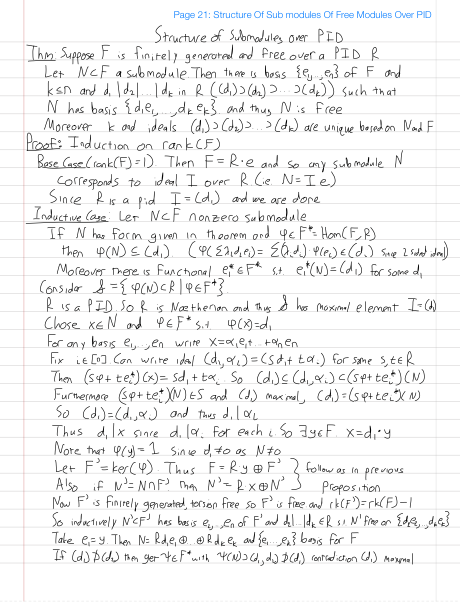 Page 21: Structure Of Sub modules Of Free Modules Over PID
Structure of Submodules over PID
Thm: Suppose F is finitely generated and free over a PID R
Let N⊂F a submodule. Then there is basis {e₁,...,eₙ} of F and
k≤n and d₁|d₂|...|dₖ in R ((d₁)⊃(d₂)⊃...⊃(dₖ)) such that
N has basis {d₁e₁,...,dₖeₖ} and thus N is free
Moreover k and ideals (d₁)⊃(d₂)⊃...⊃(dₖ) are unique based on N and F
Proof: Induction on rank(F)
Base Case (rank(F)=1). Then F=R·e and so any submodule N
corresponds to ideal I over R (ie. N=Ie)
Since R is a pid I=(d₁) and we are done
Inductive Case: Let N⊂F nonzero submodule
If N has form given in theorem and φ∈F*=Hom(F,R)
then φ(N)⊆(d₁). (φ(Σλᵢdᵢeᵢ)=Σλᵢdᵢ φ(eᵢ)∈(d₁) since 2 sided ideal)
Moreover there is functional e₁*∈F* s.t. e₁*(N)=(d₁) for some d₁
Consider S={φ(N)⊂R|φ∈F*}
R is a PID. So R is Noetherian and thus S has maximal element I=(d₁)
Chose x∈N and φ∈F* s.t. φ(x)=d₁
For any basis e₁,...,eₙ write x=α₁e₁+...+αₙeₙ
Fix i∈[n] Can write ideal (d₁,αᵢ)=(sd₁+tαᵢ) for some s,t∈R
Then (sφ+teᵢ*)(x)=sd₁+tαᵢ. So (d₁)⊆(d₁,αᵢ)⊂(sφ+teᵢ*)(N)
Furthermore (sφ+teᵢ*)(N)∈S and (d₁) maximal, (d₁)=(sφ+teᵢ*)(N)
So (d₁)=(d₁,αᵢ) and thus d₁|αᵢ
Thus d₁|x since d₁|αᵢ for each i. So ∃y∈F. x=d₁·y
Note that φ(y)=1 since d₁≠0 as N≠0
Let F'=ker(φ). Thus F=Ry⊕F' } follow as in previous
Also if N'=N∩F' then N'=Rx⊕N' } Proposition
Now F' is finitely generated, torsion free so F' is free and rk(F')=rk(F)-1
So inductively N'⊂F' has basis e₂,...,eₙ of F' and d₂|...|dₖ∈R s.t N' free on {d₂e₂,...,dₖeₖ}
Take e₁=y. Then N=Rd₁e₁⊕...⊕Rdₖeₖ and {e₁,...,eₖ} basis for F
If (d₁)⊅(d₂) then get ψ∈F* with ψ(N)⊃(d₁,d₂)⊅(d₁) contradiction (d₁) maximal